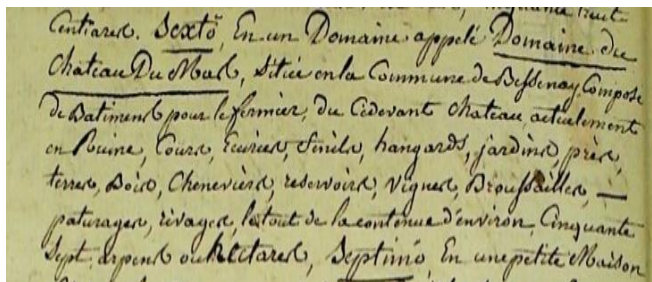 Centiares. Sexto, En un Domaine appelé Domaine du
Chateau Du Mas, Situé en la Commune de Bessenay Composé
de Batimens pour le fermier, du Cidevant Chateau actuelement
en Ruine, Cours, Ecuries, fenils, hangards, jardins, près,
terres, Bois, Chenevières, reservoirs, Vignes, Broussailles,
paturages, rivages, le tout de la contenue d'environ, Cinquante
Sept, arpens ou hectares, Septimo, En une petite Maison